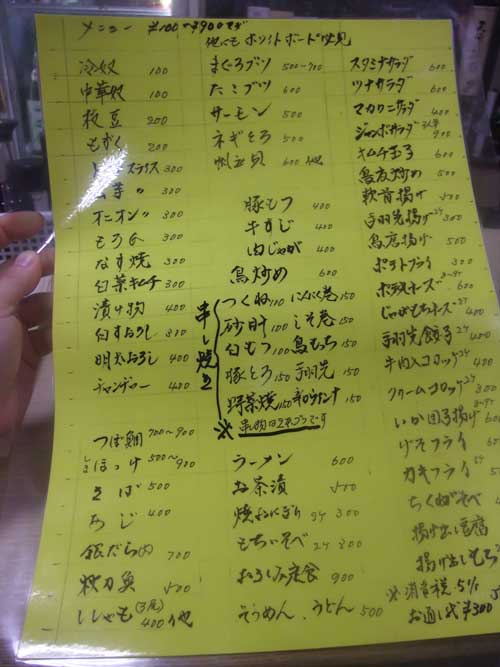 メニュー ¥100〜¥900です
他にもホワイトボード必見
冷奴 100
中華奴 100
枝豆 200
もずく 200
トマトスライス 300
山芋 〃 300
オニオン 〃 300
もろQ 300
なす焼 300
白菜キムチ 300
漬け物 400
白すおろし 300
明太おろし 400
チャンジャー 400
つぼ鯛 700〜900
しまほっけ 500〜900
さば 500
あじ 400
銀だら 700
秋刀魚 500
ししゃも (3尾) 400 他
まぐろブツ 500〜700
たこブツ 600
サーモン 500
ネギとろ 500
帆立貝 600 他
豚もつ 400
牛すじ 400
肉じゃが 400
鳥炒め 600
串し焼き
つくね 100 にんにく巻 150
砂肝 100 しそ巻 150
白もつ 100 鳥もっち 150
豚とろ 150 手羽先 150
野菜焼 150 150
※串し物は2本づつです
ラーメン 600
お茶漬 500
焼おにぎり 2ケ 300
もちいそべ 2ケ 300
おろしカツ定食 900
そうめん、うどん 500
スタミナサラダ 600
ツナサラダ 600
マカロニサラダ 400
ジャンボサラダ 3人前 900
キムチ玉子 600
鳥皮炒め 500
軟骨揚げ 500
手羽先揚げ 2ケ 300
鳥皮揚げ 500
ポテトフライ 300
ポテトチーズ
じゃがもちチーズ 2ケ 400
手羽先餃子 2ケ 400
牛肉入コロッケ 2ケ 400
クリームコロッケ 2ケ 300
いか団子揚げ
げそフライ
カキフライ
ちくわいそべ 4
揚げ出し豆腐
揚げ出しもち
※消費税 5%
お通し代 ¥300